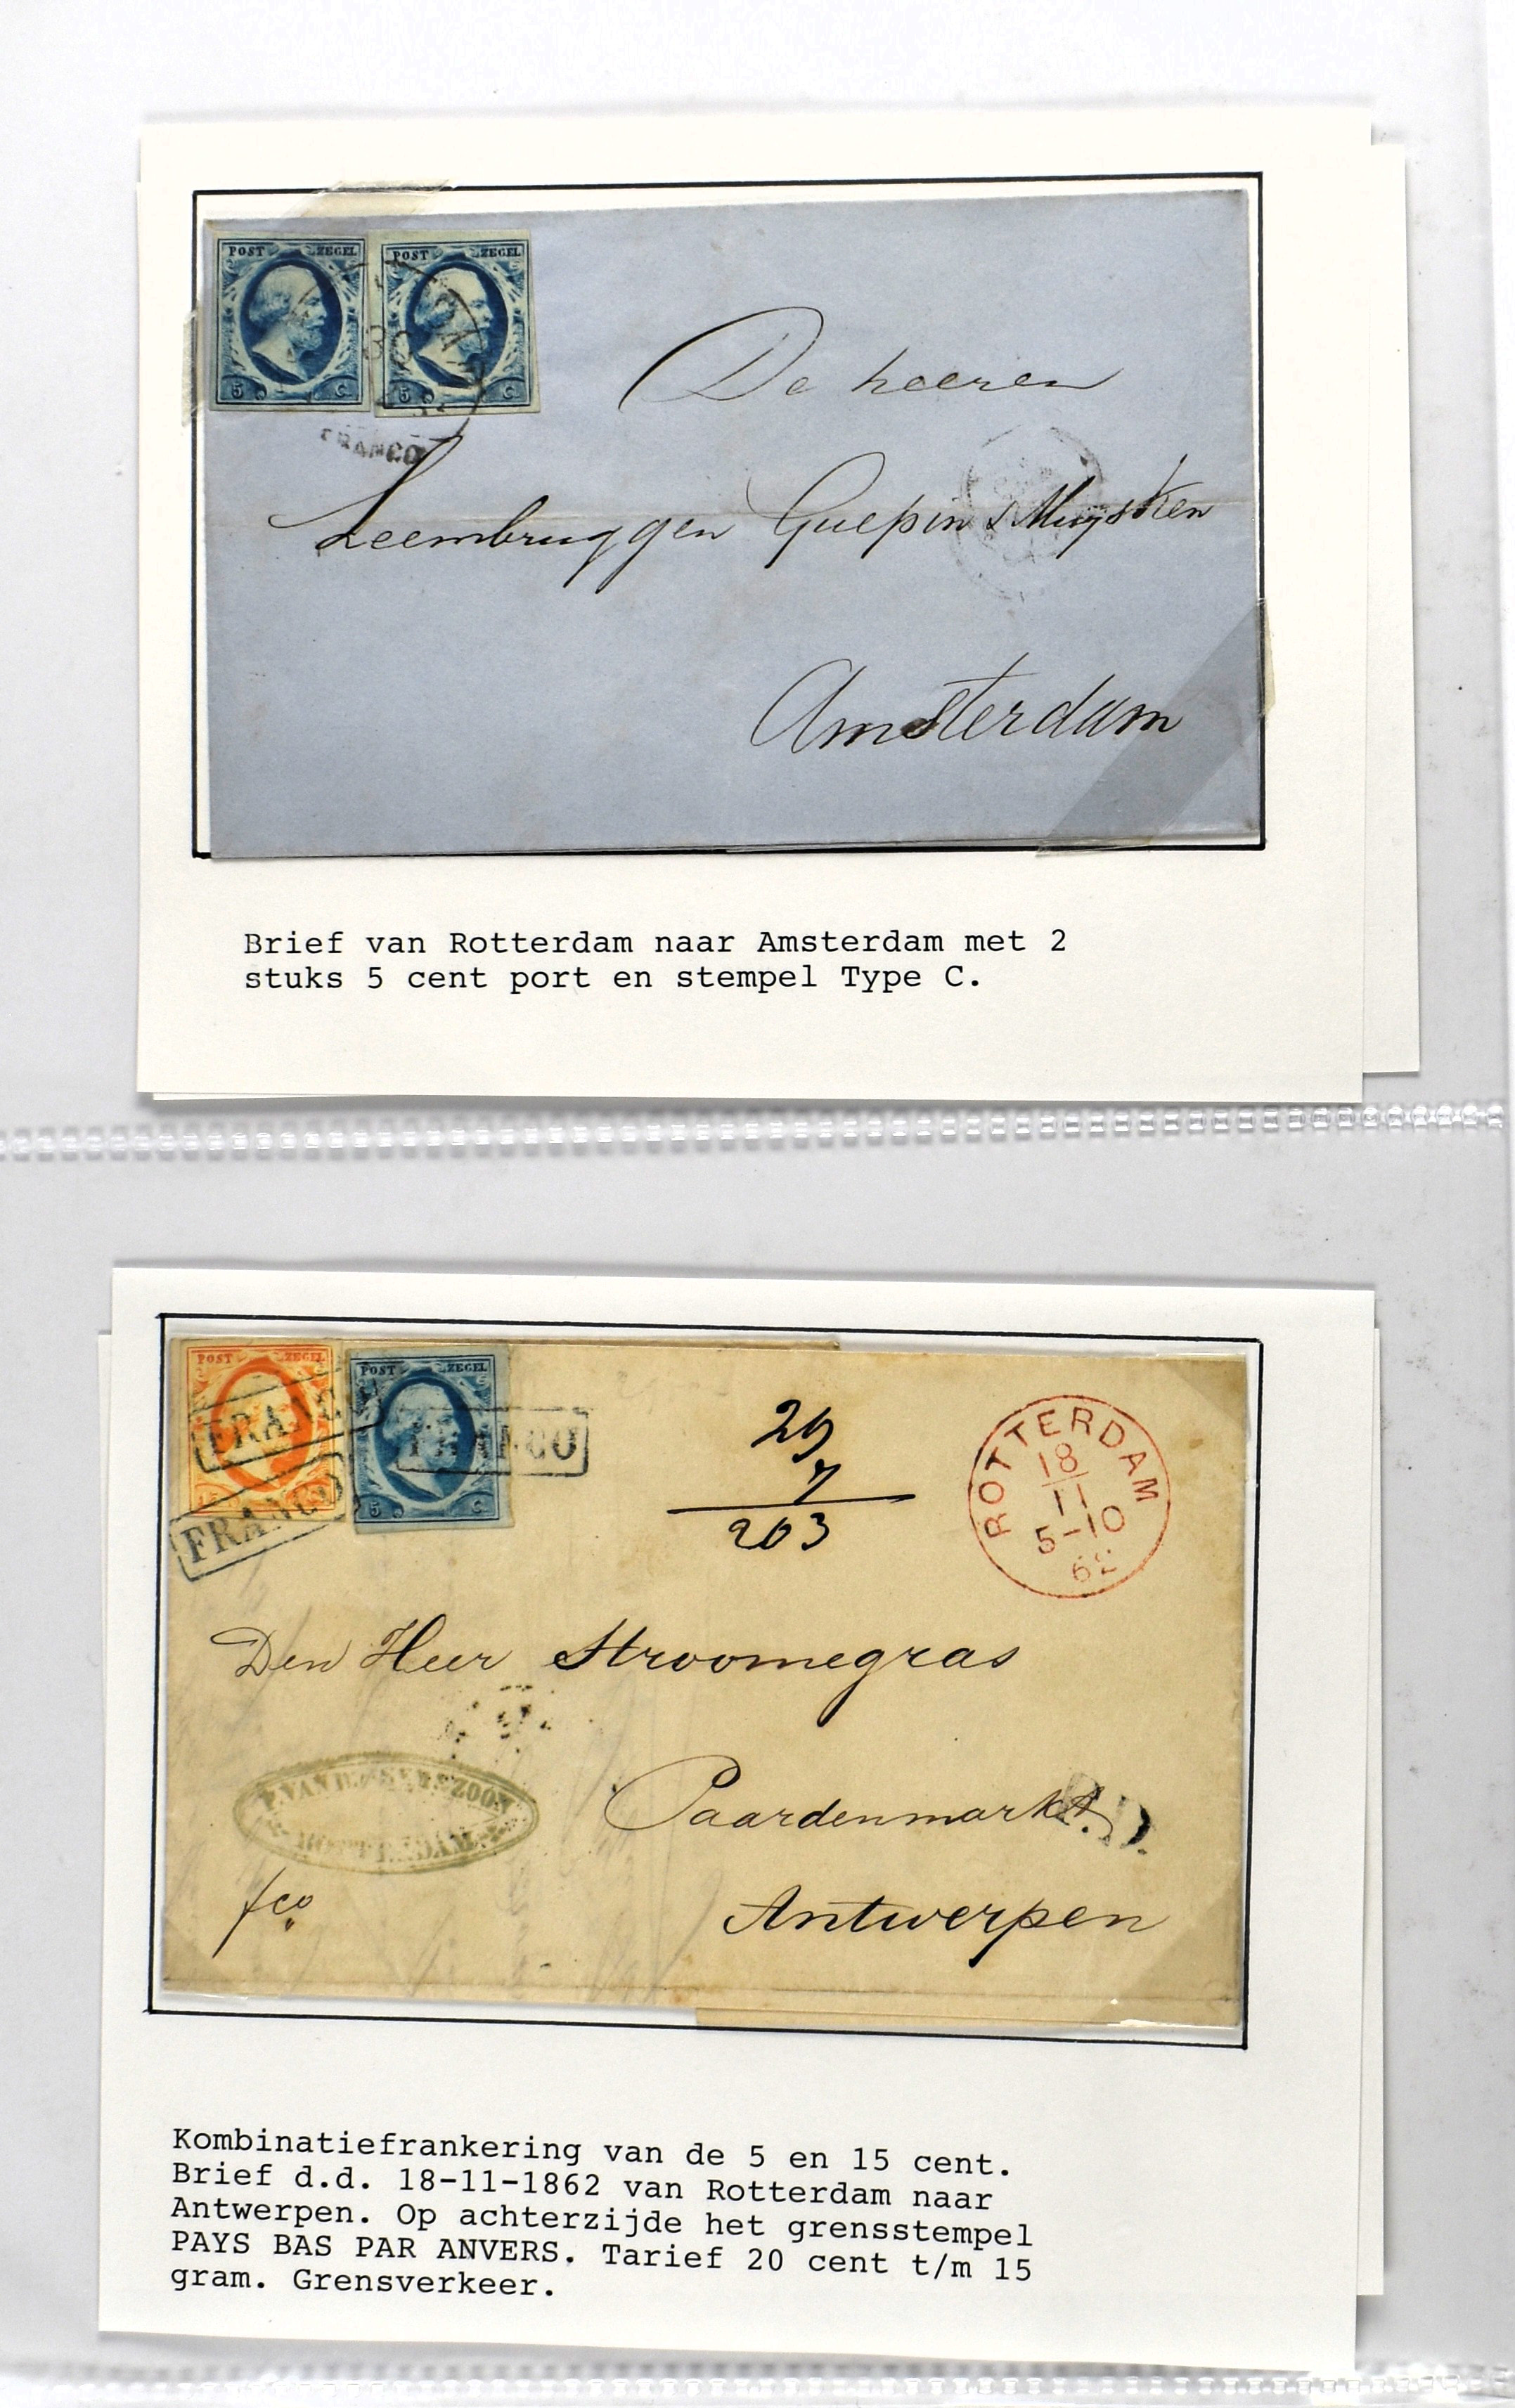 POST ZEGEL POST ZEGEL
5 C 5 C
FRANCO
De heeren
Leembruggen Guepin & Muysken
Amsterdam
Brief van Rotterdam naar Amsterdam met 2
stuks 5 cent port en stempel Type C.
POST ZEGEL POST ZEGEL
FRANCO FRANCO
5 C
FRANCO
7
203
ROTTERDAM
18
11
5-10
62
Den Heer Stroomegras
Paardenmarkt
P.D.
ROTTERDAM
fco
Antwerpen
Kombinatiefrankering van de 5 en 15 cent.
Brief d.d. 18-11-1862 van Rotterdam naar
Antwerpen. Op achterzijde het grensstempel
PAYS BAS PAR ANVERS. Tarief 20 cent t/m 15
gram. Grensverkeer.